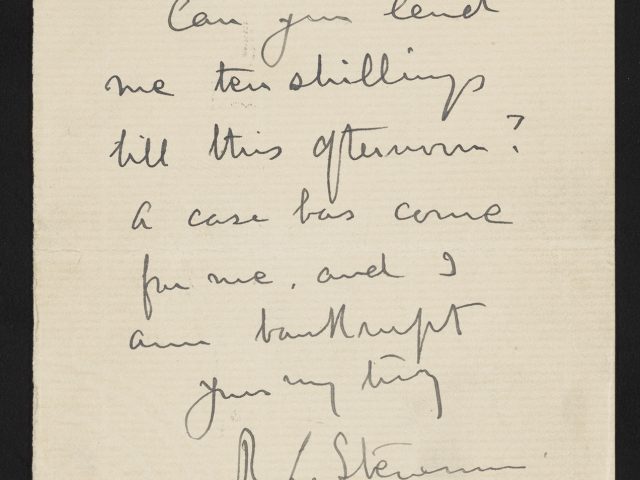 Can you lend
me ten shillings
till this afternoon?
A case has come
for me, and I
am bankrupt
yours very truly
R L Stevenson